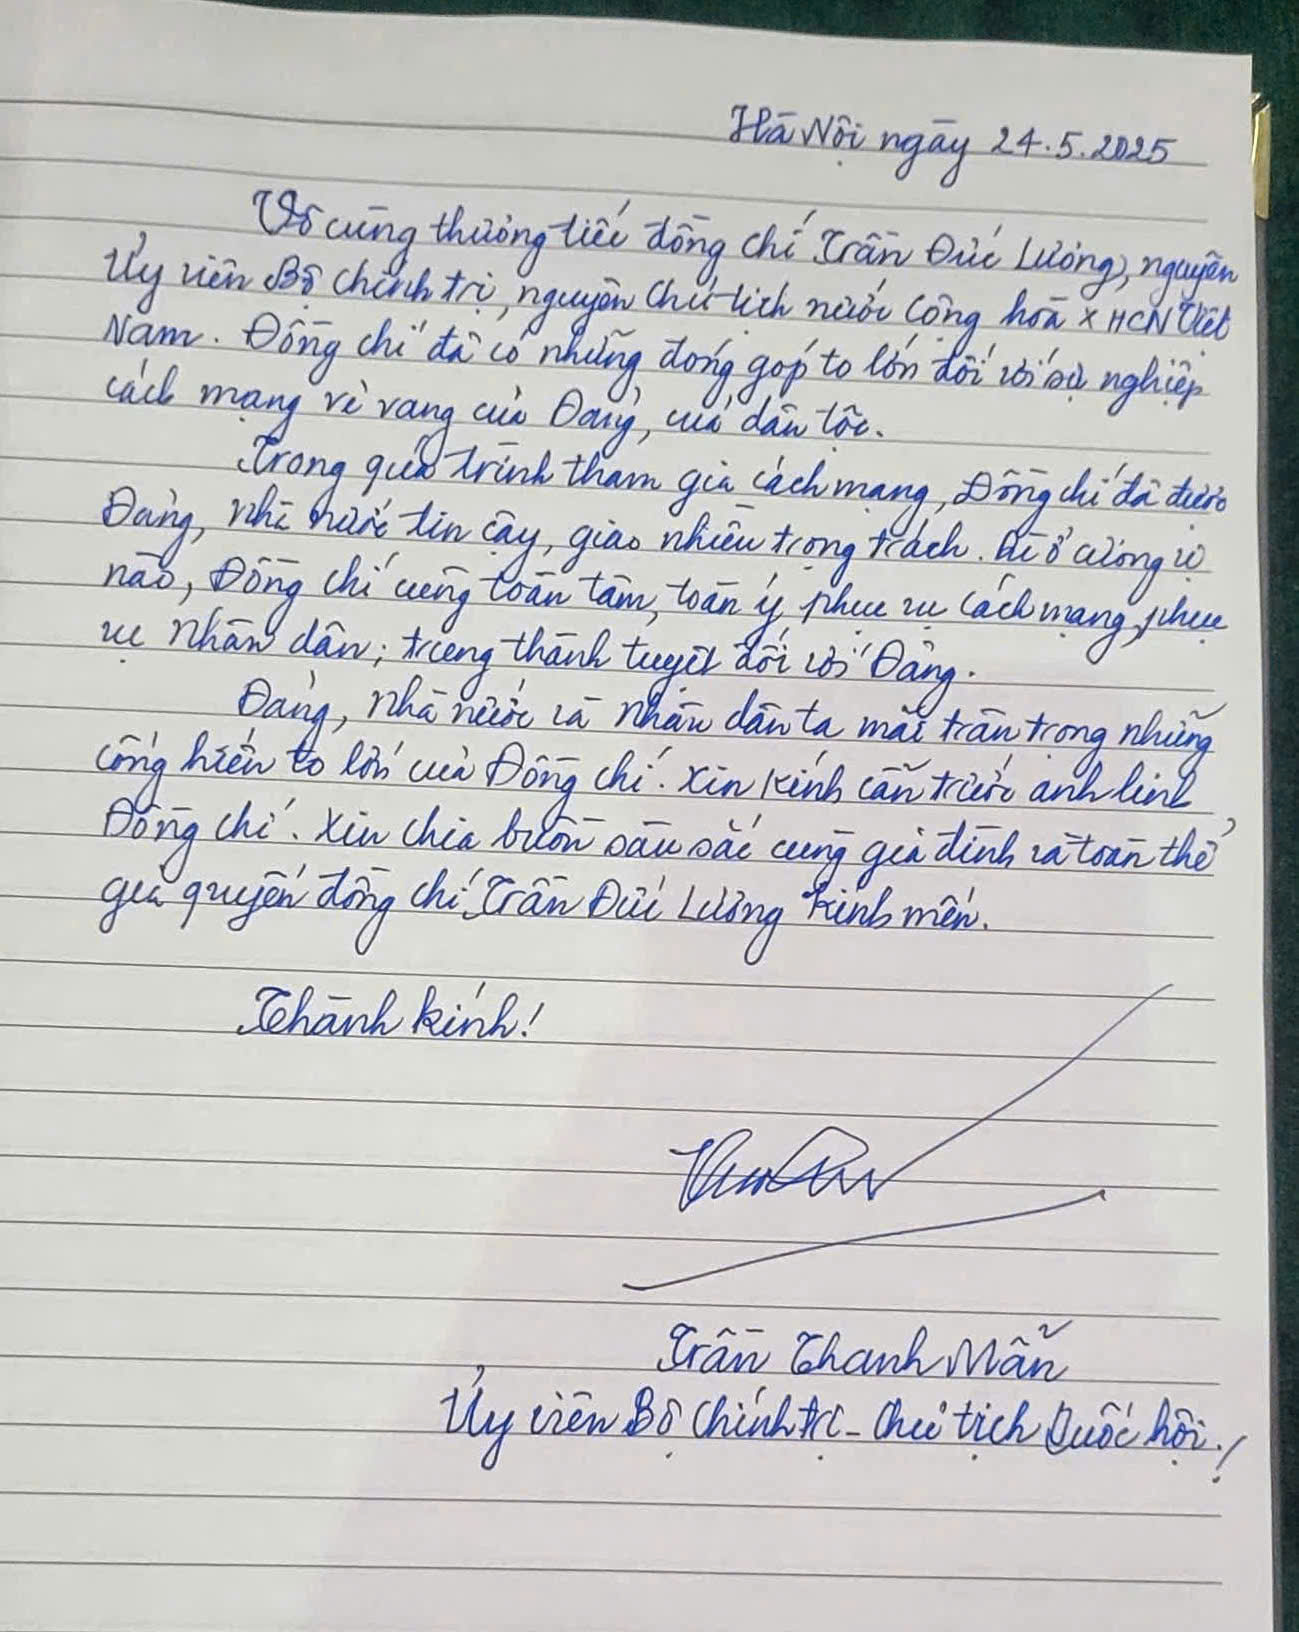 Hà Nội ngày 24.5.2025
Vô cùng thương tiếc đồng chí Trần Đức Lương, nguyên
Ủy viên Bộ chính trị, nguyên Chủ tịch nước Cộng hoà XHCN Việt
Nam. Đồng chí đã có những đóng góp to lớn đối với sự nghiệp
cách mạng vẻ vang của Đảng, của dân tộc.
Trong quá trình tham gia cách mạng, Đồng chí đã được
Đảng, Nhà nước tin cậy, giao nhiều trọng trách. Dù ở cương vị
nào, Đồng chí cũng toàn tâm, toàn ý phục vụ Cách mạng, phục
vụ Nhân dân; trung thành tuyệt đối với Đảng.
Đảng, Nhà nước và Nhân dân ta mãi trân trọng những
cống hiến to lớn của Đồng chí. Xin kính cẩn trước anh linh
Đồng chí. Xin chia buồn sâu sắc cùng gia đình và toàn thể
gia quyến đồng chí Trần Đức Lương kính mến.
Thành kính!
Trần Thanh Mẫn
Ủy viên Bộ Chính trị - Chủ tịch Quốc hội.!